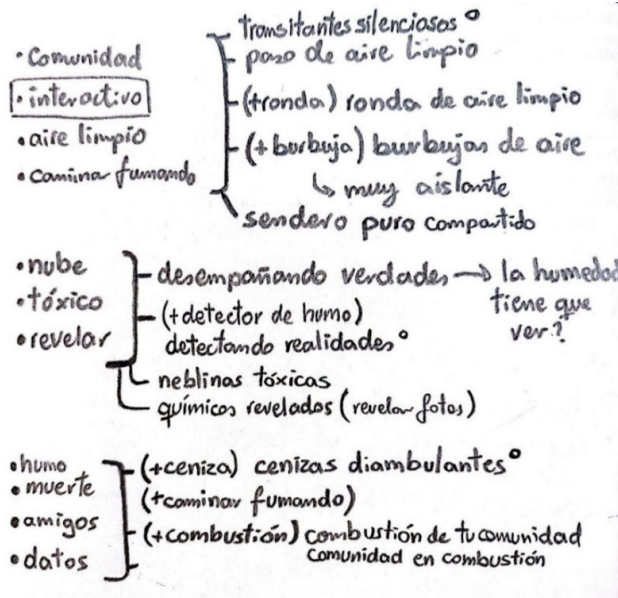 • Comunidad
• interactivo
• aire limpio
• caminar fumando
transitantes silenciosos °
paso de aire limpio
(+ronda) ronda de aire limpio
(+ burbuja) burbujas de aire
↳ muy aislante
sendero puro compartido
• nube
• tóxico
• revelar
desempañando verdades → la humedad
tiene que
ver?
(+detector de humo)
detectando realidades °
neblinas tóxicas
químicos revelados (revelar fotos)
• humo
• muerte
• amigos
• datos
(+ceniza) cenizas diambulantes °
(+caminar fumando)
(+combustión) combustión de tu comunidad
comunidad en combustión